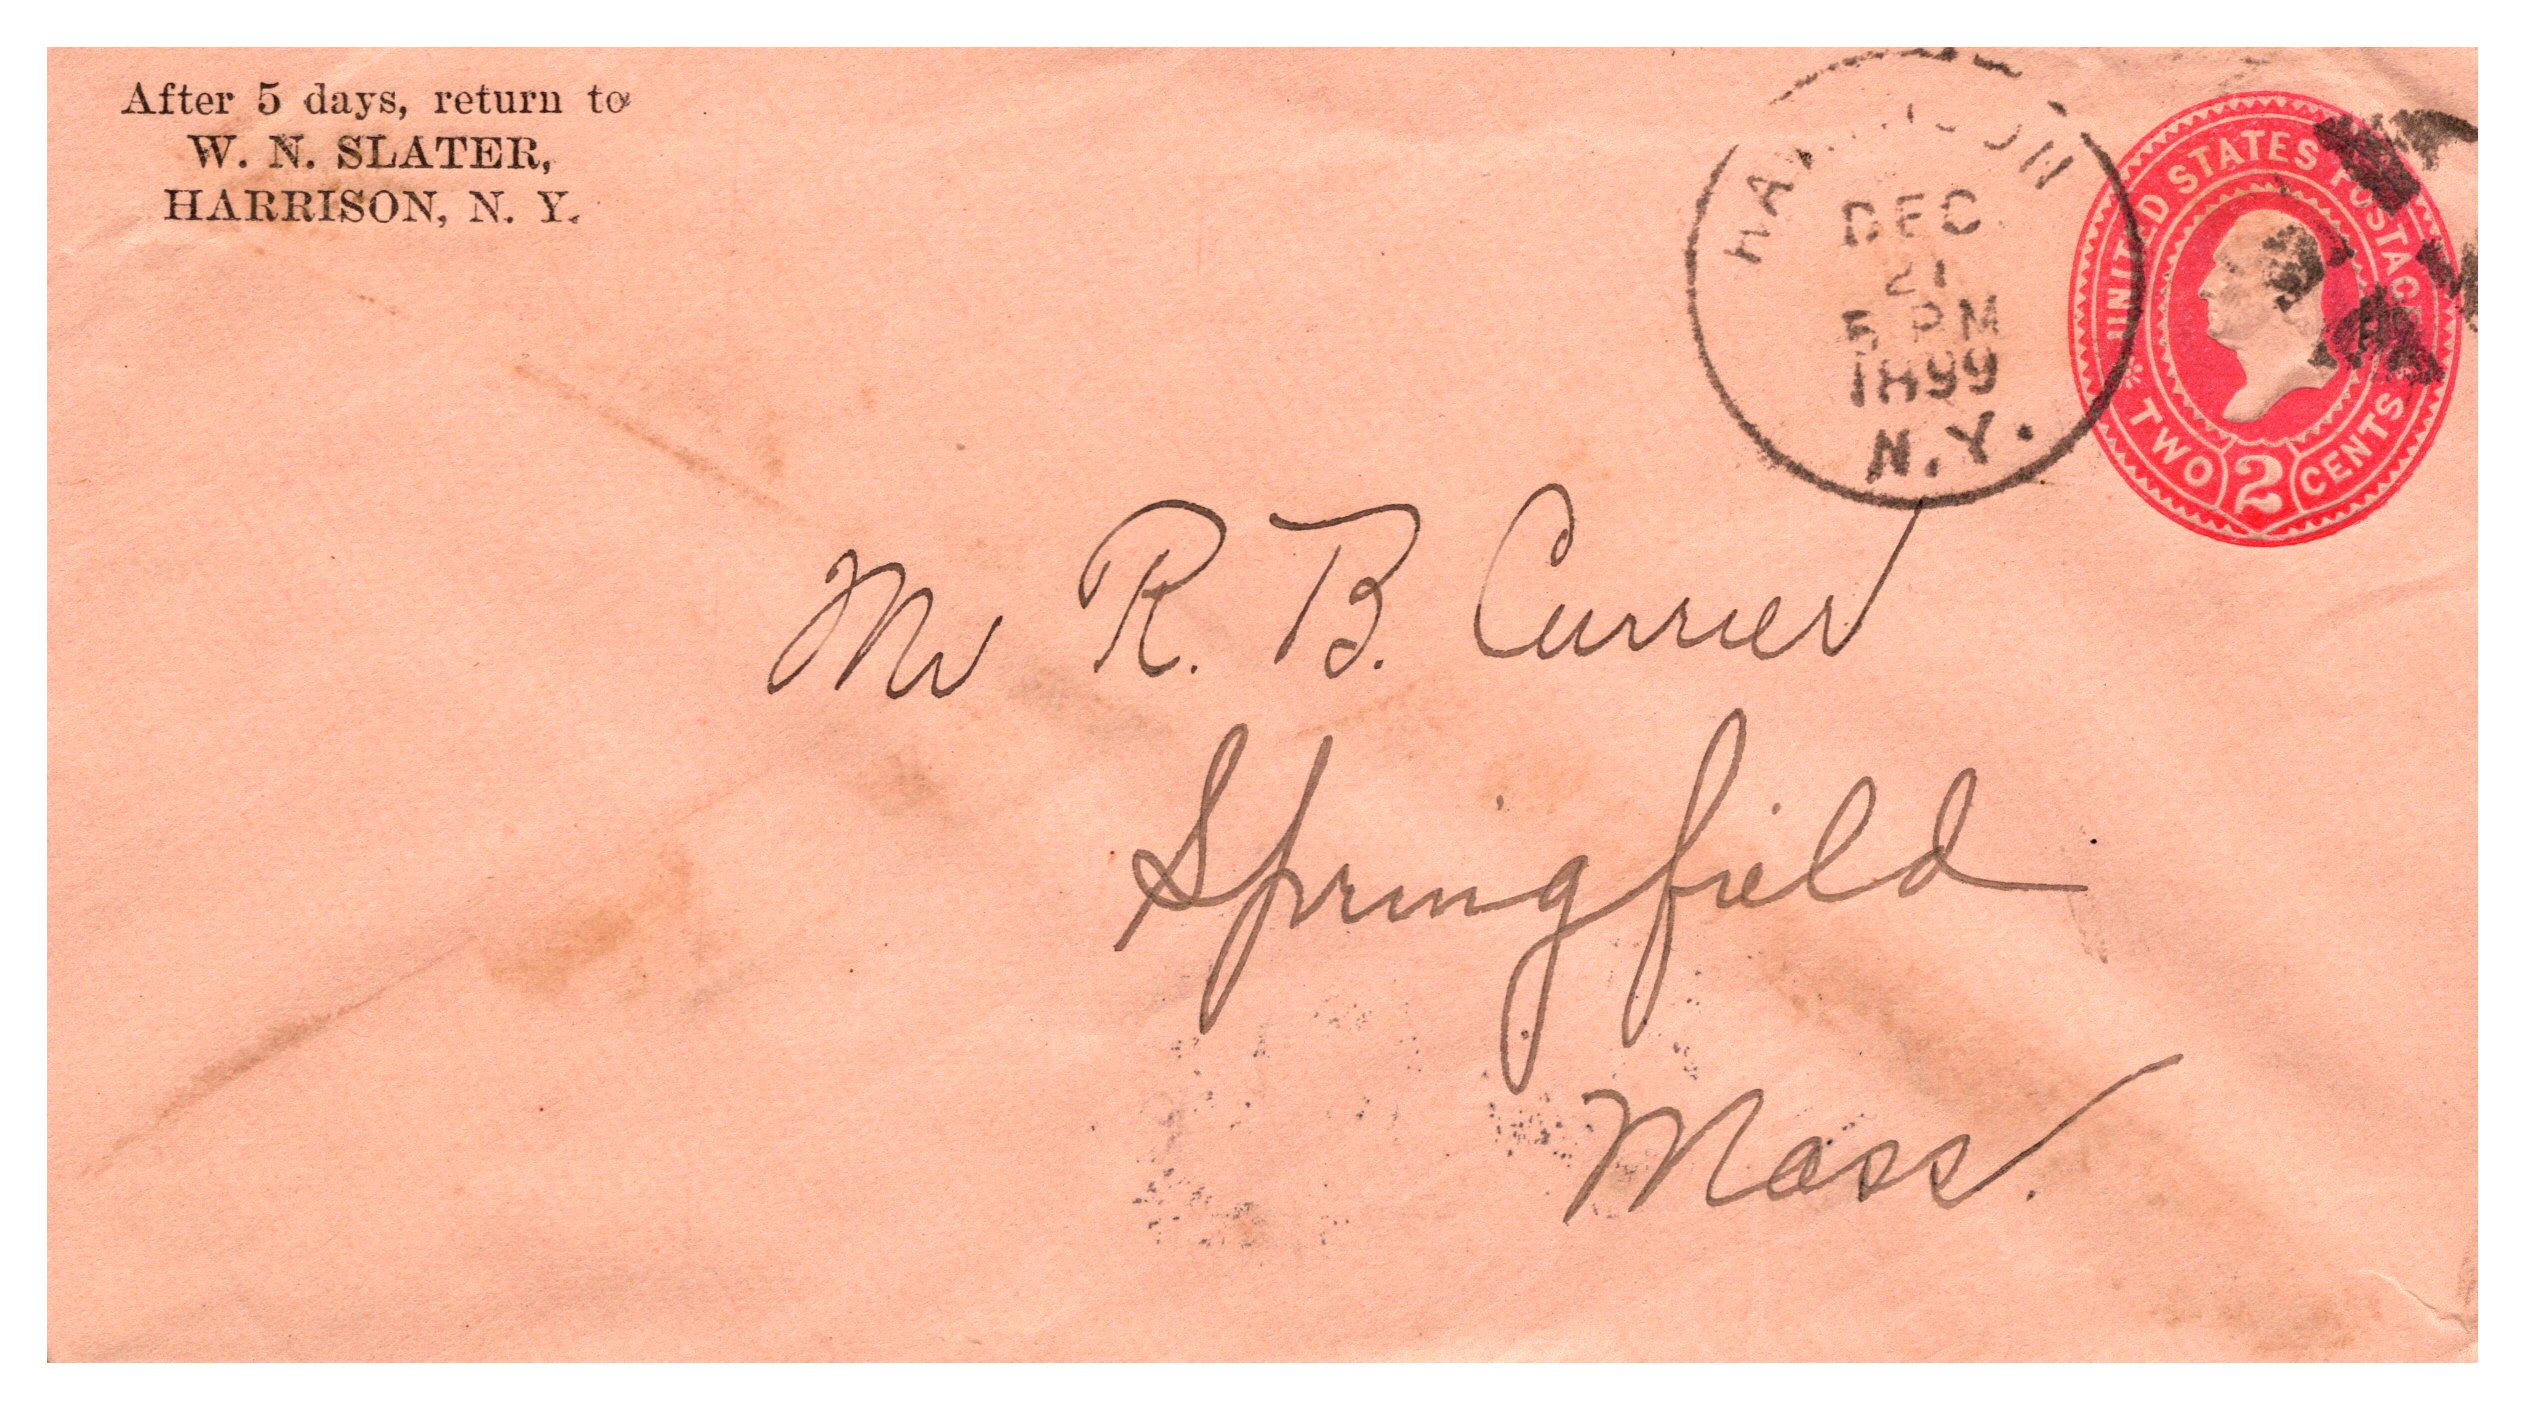 After 5 days, return to
W. N. SLATER,
HARRISON, N. Y.
HARRISON
DEC
21
5 PM
1899
N.Y.
UNITED STATES POSTAGE
TWO 2 CENTS
Mr R. B. Currier
Springfield
Mass.